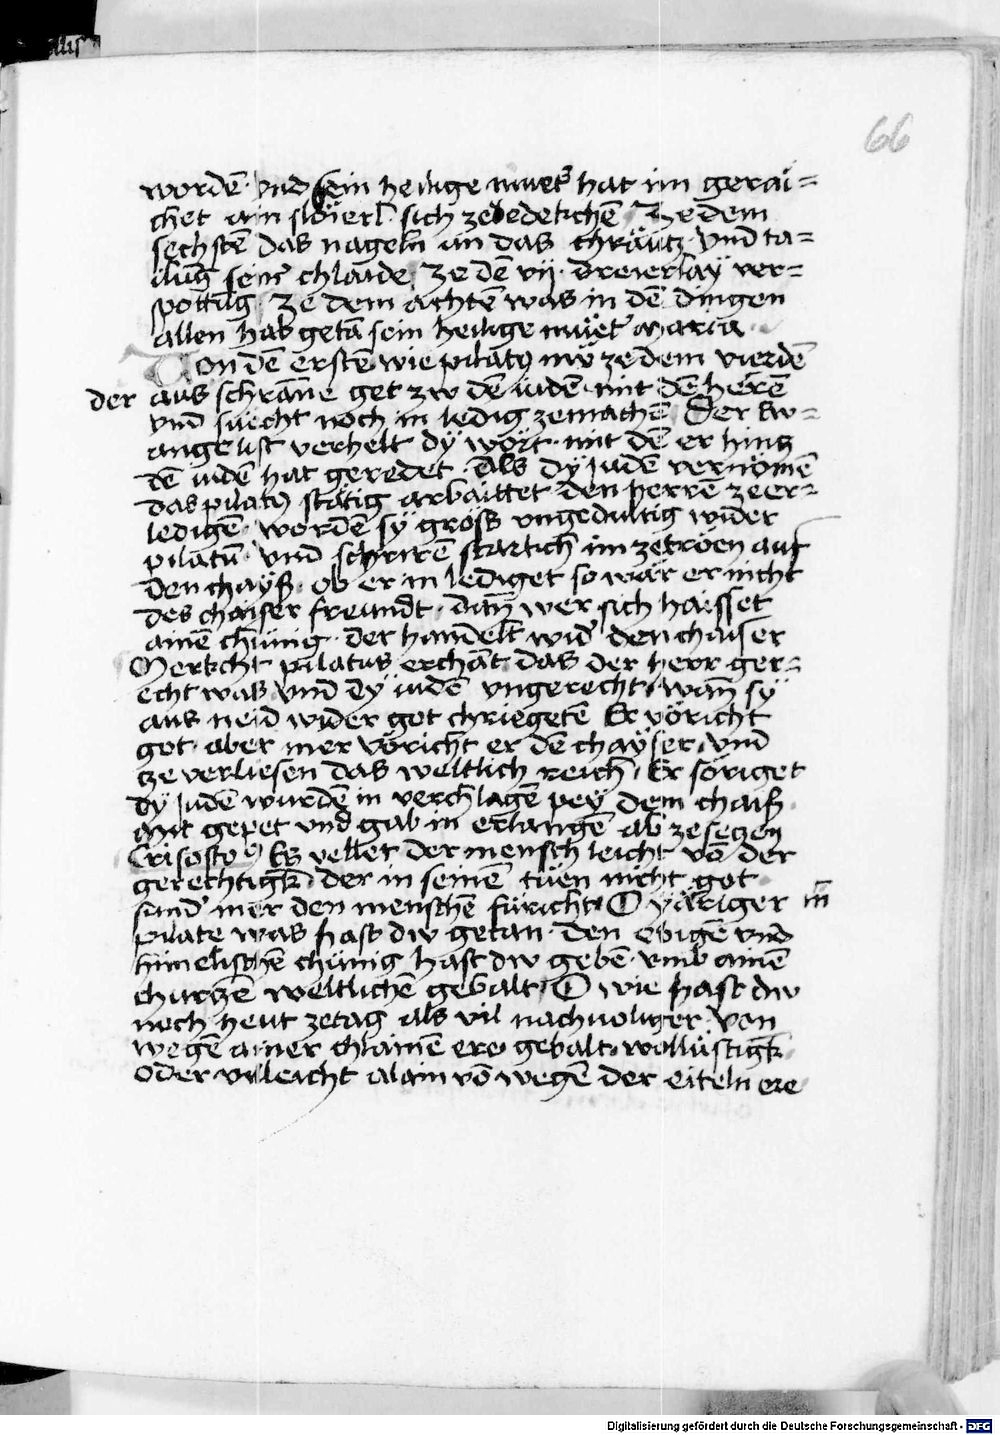 66
wordē · vnd sein heilige muet̄ hat im gerai=
chet ain slöierl sich zebedekchē Ze dem
sechstē das nageln an das chräutz · vnd ta=
ilūg sein̄ chlaide · Ze dē vij · dreierlay ver=
spottūg · Ze dem achtē was in dē dingen
allen hab getā sein heilige muet̄ Maria ·
Von dē erstē wie pilatꝰ nw ze dem vierdē
der aus schrāne get zw dē iudē · mit dē herē
vnd suecht noch in ledig zemachē Der Ew=
angelist verhelt dy wört · mit dē er hinz
dē iudē hat geredet · Als dy Judē vernömē
das pilatꝰ stätig arbaittet den herrē zeer=
ledigē · wordē sy gröss vngedultig wider
pilatū · vnd schrirē starkich im zetröen auf
den chayß · ob er in lediget so wär er nicht
des chaiser freundt · Dañ wer sich haisset
ainē chünig · der handelt wid̄ den chaiser
Merkcht pilatus erchāt das der herr ger=
echt was vnd dy iudē vngerecht · wañ sy
aus neid wider got chriegetē Er vöricht
got · aber mer vöricht er dē chayser · vnd
ze verliesen das weltlich reich · Er söriget
dy Judē wurdē in verchlagē pey dem chaiß ·
mit gepet vnd gab in erlangē ab zesetzen
Crisostoꝰ Es vellet der mensch leicht vō der
gerechtigk̄ · der in seinē tüen nicht got
sund̄ mer den menschē füricht · O yäriger in̄
pilate was hast dw getan · den ebigē vnd
himelischē chünig hast dw gebē · vmb ainē
churtzē weltlichē gebalt · O wie hast dw
noch heut zetag als vil nachuoliger · von
wegē ainer chlainē ere · gebalt · wollüstigk̄
oder villeicht alain vō wegē der eiteln ere
Digitalisierung gefördert durch die Deutsche Forschungsgemeinschaft - DFG